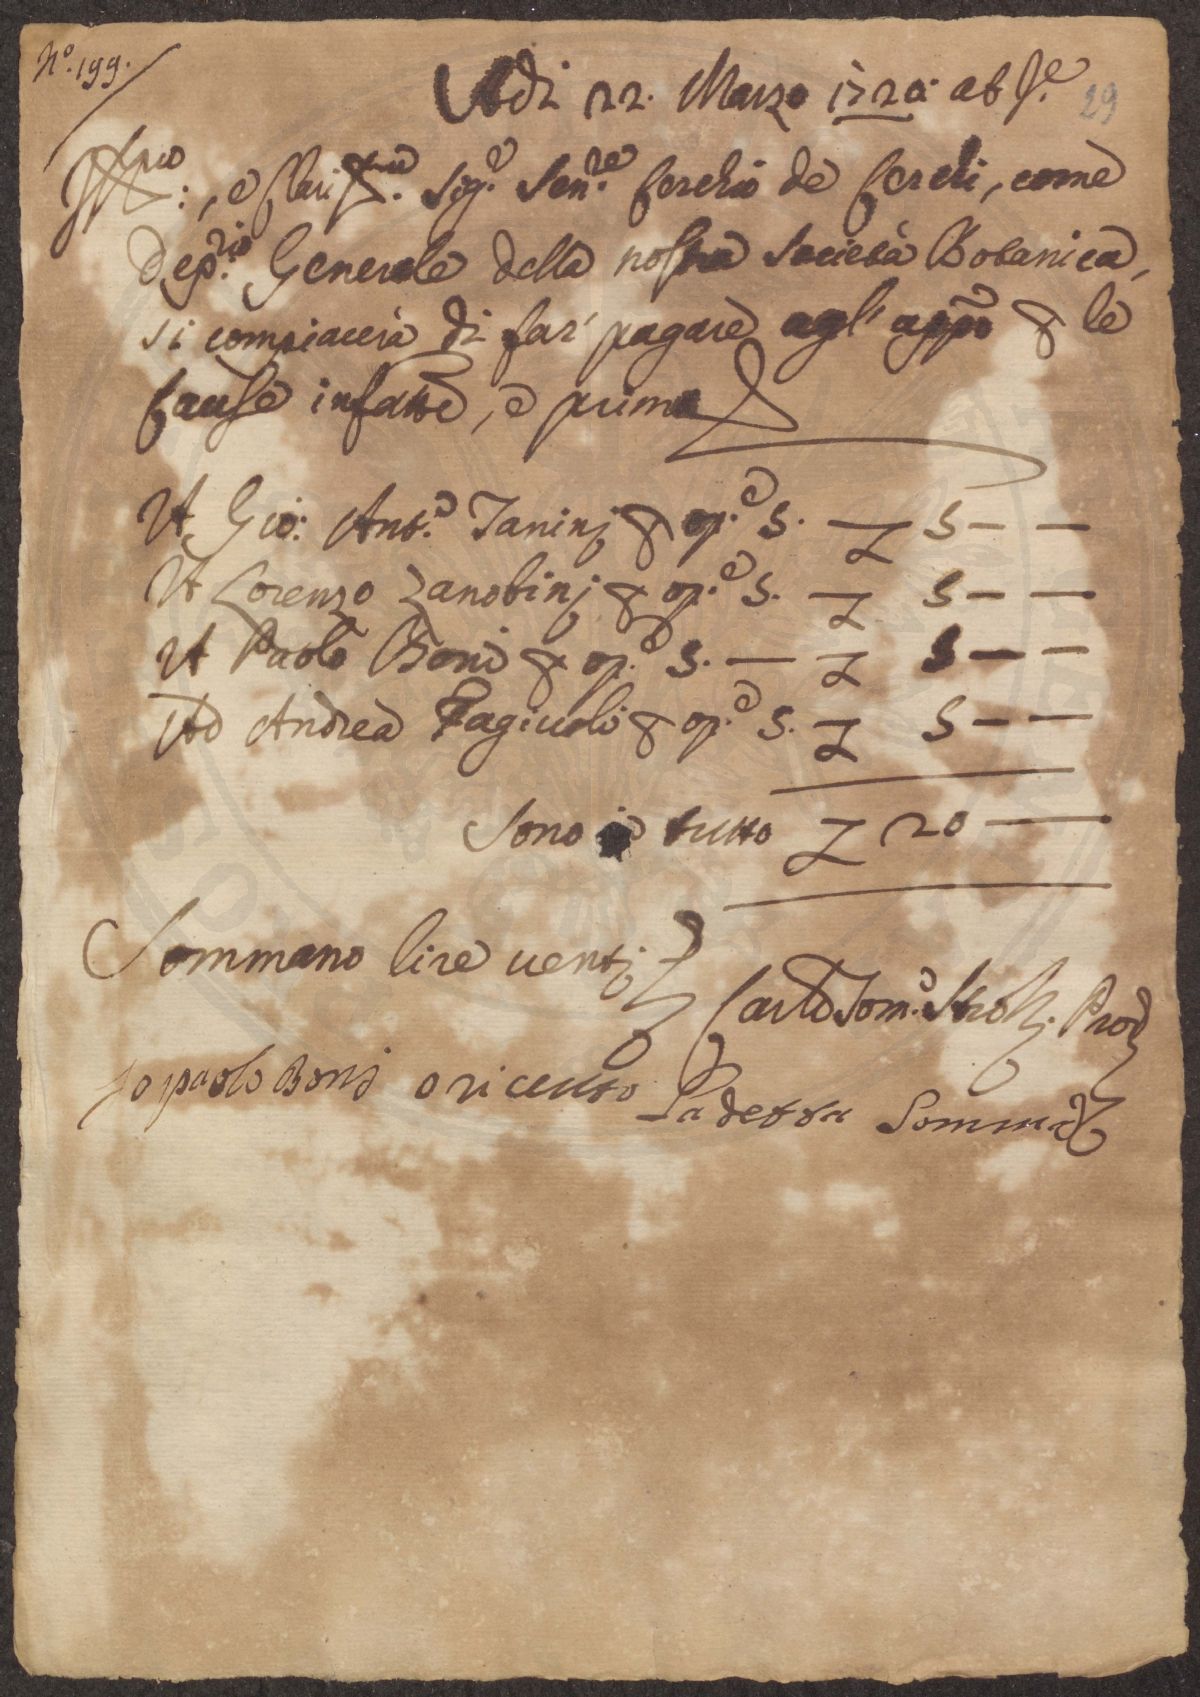 N.° 199.
Adi 22. Marzo 1720 ab I.e
29
Ill.mo:, e Clariss.mo Sig.r Sen.re Cerchio de Cerchi, come
Dep.rio Generale della nostra Società Botanica,
si compiacerà di far' pagare agl' app.o p le
Cause infatte, e prima
A Gio: Ant.o Janinj p op.e 5. — L 5 — —
A Lorenzo Zanobinj p op.e 5. — L 5 — —
A Paolo Boni p op.e 5. — L 5 — —
Ad Andrea Fagiuoli p op.e 5. L 5 — —
Sono in tutto L 20 —
Sommano lire uentj
Carlo Tom.o Strozzi Prov.
Io paolo Boni o riceuto
La detta Somma